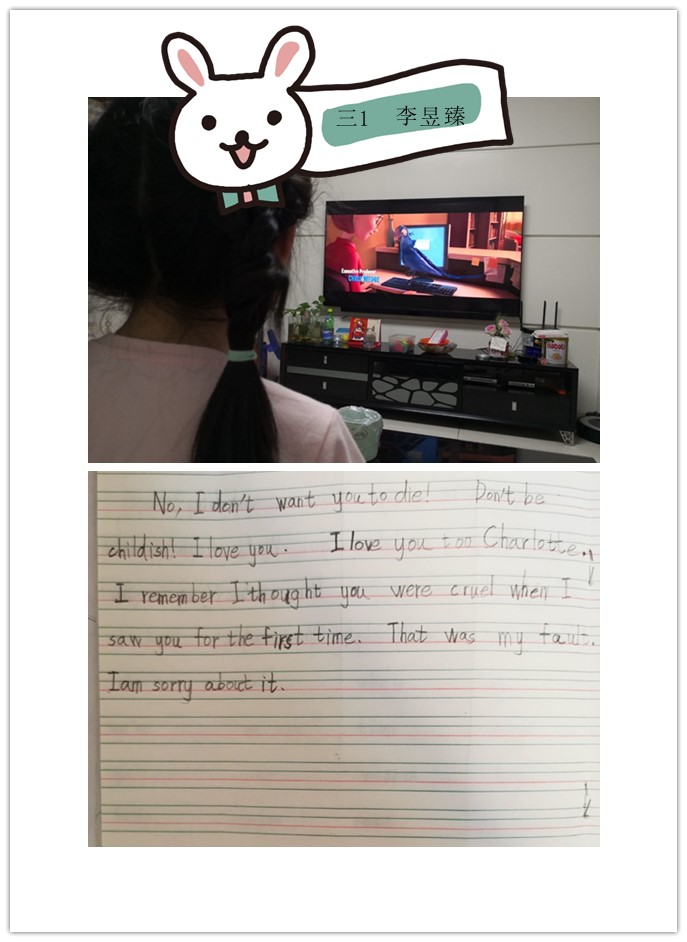 三1 李昱臻
Executive Producer
No, I don't want you to die! Don't be
childish! I love you. I love you too Charlotte.
I remember I thought you were cruel when I
saw you for the first time. That was my fault.
I am sorry about it.